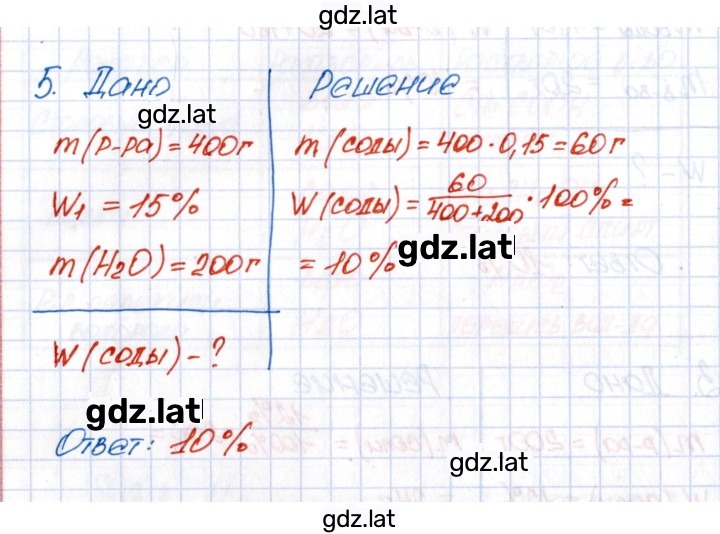 gdz.lat
5. Дано
Решение
gdz.lat
m(р-ра) = 400г
m(соды) = 400·0,15 = 60г
W₁ = 15%
W(соды) = 60/(400+200)·100% =
gdz.lat
m(H₂O) = 200г
= 10%
W(соды) - ?
gdz.lat
Ответ: 10%
gdz.lat
gdz.lat